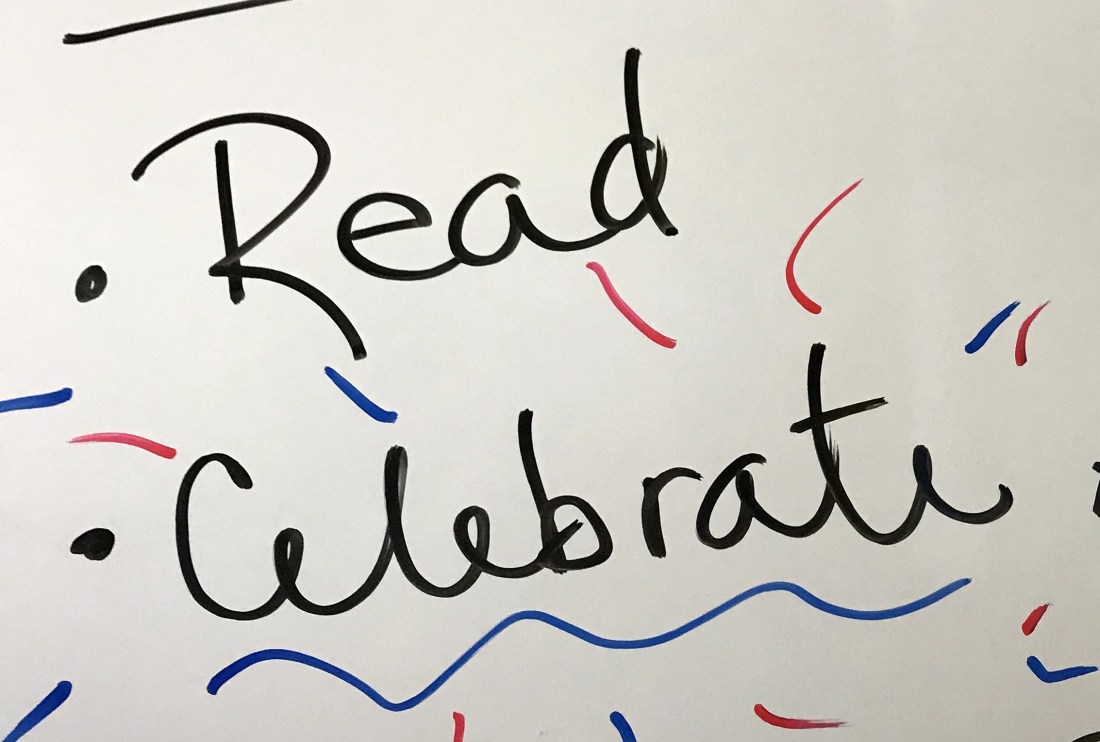 • Read
• Celebrate